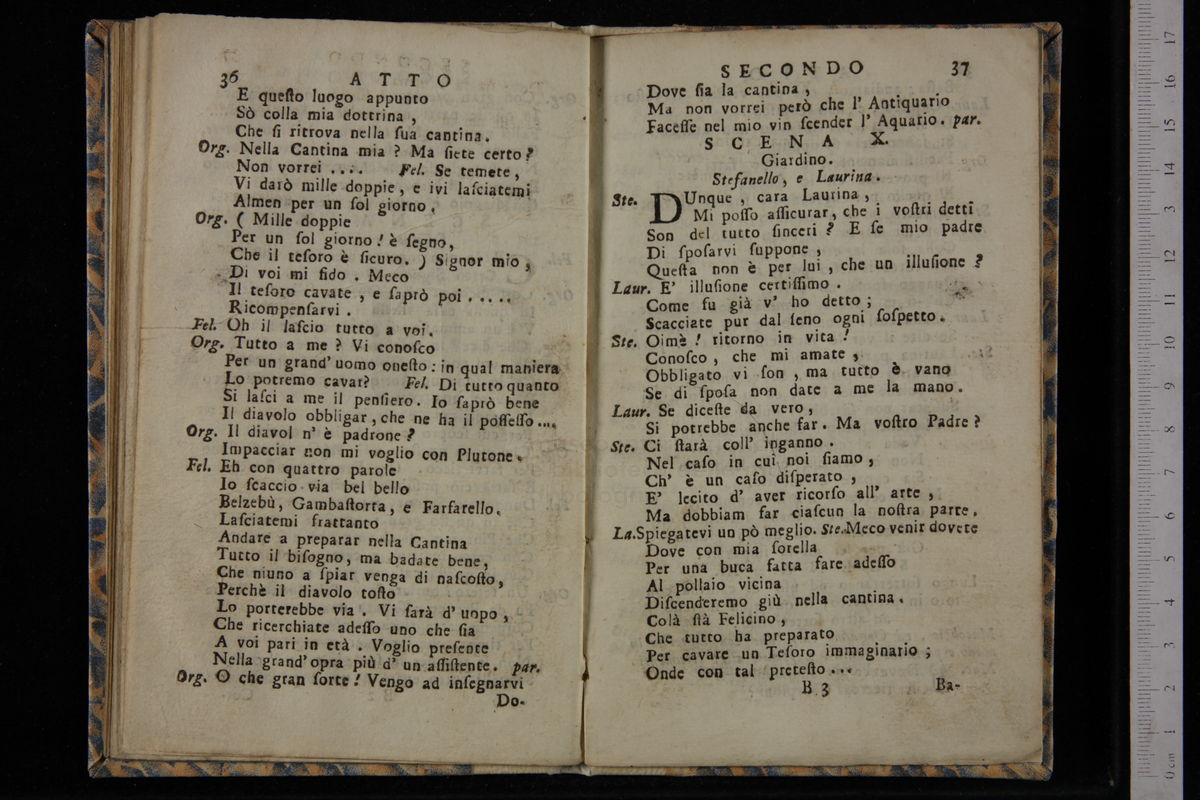 36 ATTO
E queſto luogo appunto
Sò colla mia dottrina,
Che ſi ritrova nella ſua cantina.
Org. Nella Cantina mia? Ma ſiete certo?
Non vorrei .... Fel. Se temete,
Vi darò mille doppie, e ivi laſciatemi
Almen per un ſol giorno.
Org. ( Mille doppie
Per un ſol giorno! è ſegno,
Che il teſoro è ſicuro. ) Signor mio,
Di voi mi fido. Meco
Il teſoro cavate, e ſaprò poi .....
Ricompenſarvi.
Fel. Oh il laſcio tutto a voi.
Org. Tutto a me? Vi conoſco
Per un grand' uomo oneſto: in qual maniera
Lo potremo cavar? Fel. Di tutto quanto
Si laſci a me il penſiero. Io ſaprò bene
Il diavolo obbligar, che ne ha il poſſeſſo....
Org. Il diavol n' è padrone?
Impacciar non mi voglio con Plutone.
Fel. Eh con quattro parole
Io ſcaccio via bel bello
Belzebù, Gambaſtorta, e Farfarello.
Laſciatemi frattanto
Andare a preparar nella Cantina
Tutto il biſogno, ma badate bene,
Che niuno a ſpiar venga di naſcoſto,
Perchè il diavolo toſto
Lo porterebbe via. Vi ſarà d' uopo,
Che ricerchiate adeſſo uno che ſia
A voi pari in età. Voglio preſente
Nella grand' opra più d' un aſſiſtente. par.
Org. O che gran ſorte! Vengo ad inſegnarvi
Do-
SECONDO 37
Dove ſia la cantina,
Ma non vorrei però che l' Antiquario
Faceſſe nel mio vin ſcender l' Aquario. par.
SCENA X.
Giardino.
Stefanello, e Laurina.
Ste. DUnque, cara Laurina,
Mi poſſo aſſicurar, che i voſtri detti
Son del tutto ſinceri? E ſe mio padre
Di ſpoſarvi ſuppone,
Queſta non è per lui, che un illuſione?
Laur. E' illuſione certiſſimo.
Come fu già v' ho detto;
Scacciate pur dal ſeno ogni ſoſpetto.
Ste. Oimè! ritorno in vita!
Conoſco, che mi amate,
Obbligato vi ſon, ma tutto è vano
Se di ſpoſa non date a me la mano.
Laur. Se diceſte da vero,
Si potrebbe anche far. Ma voſtro Padre?
Ste. Ci ſtarà coll' inganno.
Nel caſo in cui noi ſiamo,
Ch' è un caſo diſperato,
E' lecito d' aver ricorſo all' arte,
Ma dobbiam far ciaſcun la noſtra parte.
La. Spiegatevi un pò meglio. Ste. Meco venir dovete
Dove con mia ſorella
Per una buca fatta fare adeſſo
Al pollaio vicina
Diſcenderemo giù nella cantina.
Colà ſtà Felicino,
Che tutto ha preparato
Per cavare un Teſoro immaginario;
Onde con tal preteſto ...
B 3 Ba-
0 cm 1 2 3 4 5 6 7 8 9 10 11 12 13 14 15 16 17